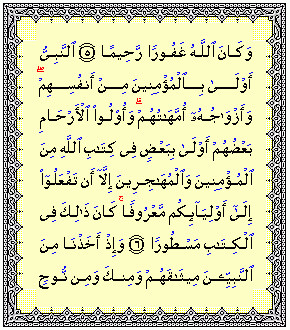 وَكَانَ ٱللَّهُ غَفُورًا رَّحِيمًا ۝٥ ٱلنَّبِىُّ
أَوْلَىٰ بِٱلْمُؤْمِنِينَ مِنْ أَنفُسِهِمْ ۖ
وَأَزْوَٰجُهُۥٓ أُمَّهَٰتُهُمْ ۗ وَأُو۟لُوا۟ ٱلْأَرْحَامِ
بَعْضُهُمْ أَوْلَىٰ بِبَعْضٍ فِى كِتَٰبِ ٱللَّهِ مِنَ
ٱلْمُؤْمِنِينَ وَٱلْمُهَٰجِرِينَ إِلَّآ أَن تَفْعَلُوٓا۟
إِلَىٰٓ أَوْلِيَآئِكُم مَّعْرُوفًا ۚ كَانَ ذَٰلِكَ فِى
ٱلْكِتَٰبِ مَسْطُورًا ۝٦ وَإِذْ أَخَذْنَا مِنَ
ٱلنَّبِيِّۦنَ مِيثَٰقَهُمْ وَمِنكَ وَمِن نُّوحٍ